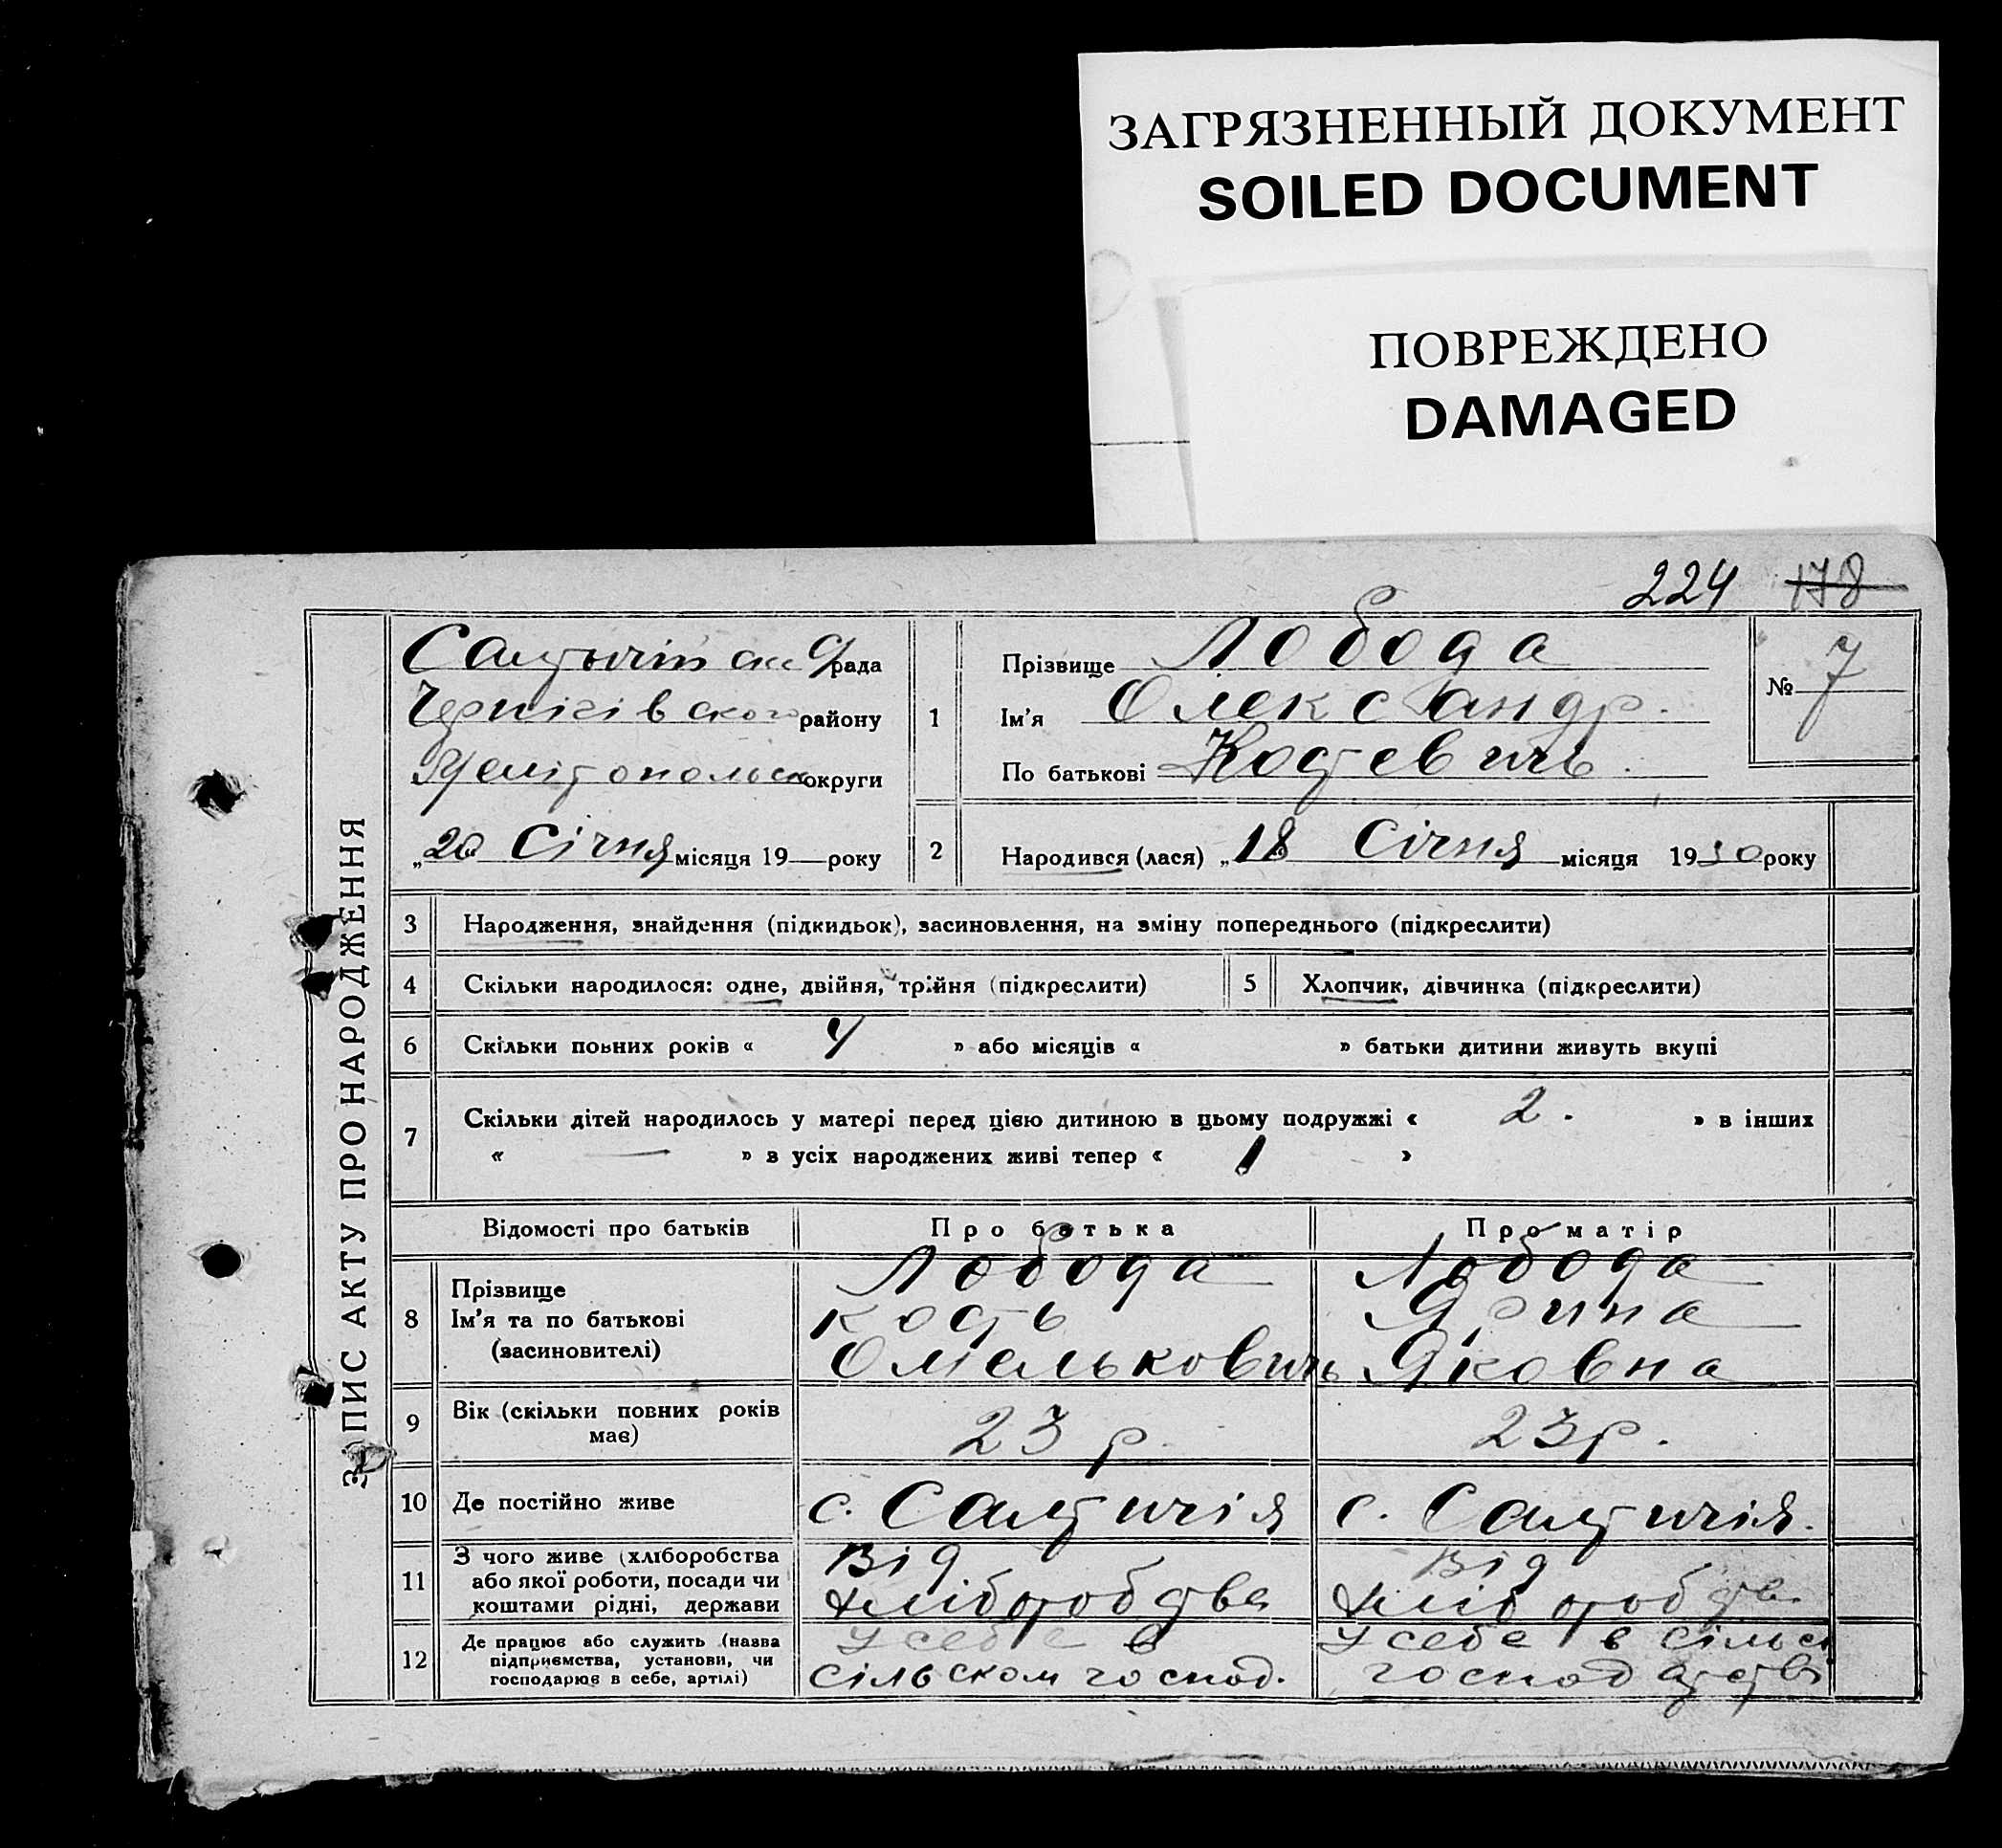 ЗАГРЯЗНЕННЫЙ ДОКУМЕНТ
SOILED DOCUMENT
ПОВРЕЖДЕНО
DAMAGED
224 178
ЗАПИС АКТУ ПРО НАРОДЖЕННЯ
рада
Чернігівського району
округи
„20 Січня місяця 19 — року
1
Прізвище Лобода
Ім'я Олександр.
По батькові Костевичь.
№ 7
2
Народився (лася) „18 Січня місяця 1930 року
3 Народження, знайдення (підкидьок), засиновлення, на зміну попереднього (підкреслити)
4 Скільки народилося: одне, двійня, трійня (підкреслити)
5 Хлопчик, дівчинка (підкреслити)
6 Скільки повних років « 4 » або місяців « » батьки дитини живуть вкупі
7 Скільки дітей народилось у матері перед цією дитиною в цьому подружжі « 2. » в інших
« — » в усіх народжених живі тепер « 1 »
Відомості про батьків Про батька Про матір
8 Прізвище Лобода Лобода
Ім'я та по батькові Кость Ярина
(засиновителі) Омельковичь Яковна
9 Вік (скільки повних років має) 23 р. 23 р.
10 Де постійно живе с. Салтичія с. Салтичія.
11 З чого живе (хліборобства Від Від
або якої роботи, посади чи хліборобства хліборобства
коштами рідні, держави
12 Де працює або служить (назва у себе в у себе в сільс
підприємства, установи, чи сільском господ. господарстві
господарює в себе, артілі)